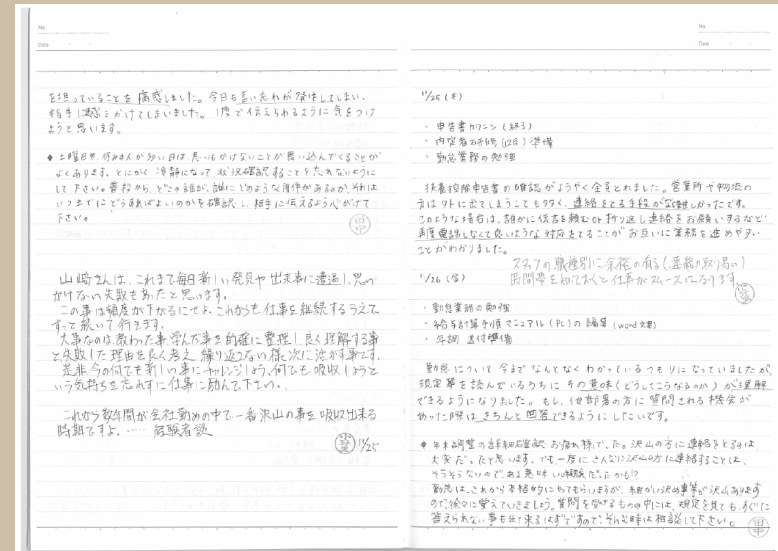 No.
Date
を担っていることを痛感しました。今日も言い忘れが発生してしまい、
相手に迷惑をかけてしまいました。1度で伝えられるように気をつけ
ようと思います。
◆ 土曜日や、休みの人が多い日は、思いもかけないことが舞い込んでくることが
よくあります。とにかく冷静になって、状況確認することを忘れないように
して下さい。普段から、どこの誰が、誰にどのような用件があるのか、それは
いつまでにどうすればよいのかを確認し、相手に伝えるよう心がけて
下さい。
山崎さんは、これまで毎日新しい発見や出来事に遭遇し、思い
かけない失敗もあったと思います。
この事は頻度が下がるにせよ、これからも仕事を継続するうえで
ずっと続いて行きます。
大事なのは、教わった事、学んだ事を的確に整理し、良く理解する事
と、失敗した理由を良く考え、繰り返さない様、次に活かす事です。
是非、今の何でも新しい事にチャレンジしよう、何でも吸収しようと
いう気持ちを忘れずに仕事に励んで下さい。
これから数年間が会社勤めの中で、一番沢山の事を吸収出来る
時期ですよ。…… 経験者談
11/25
No.
Date
11/25 (木)
・申告書カクニン (終了)
・内定者研修 (12月) 準備
・勤怠業務の勉強
扶養控除申告書の確認がようやく全員とれました。営業所や物流の
方は外に出てしまうことも多く、連絡をとる手段がなく難しかったです。
このような場合は、誰かに伝言を頼む or 折り返し連絡をお願いするなど
再度電話しなくて良いような対応をとることがお互いに業務を進めやすい
ことがわかりました。
スタッフの職種別に余裕の有る(連絡の取り易い)
時間帯を知っておくと仕事がスムーズになります。
11/26 (金)
・勤怠業務の勉強
・給与計算手順マニュアル (PC) の編集 (word文書)
・年調 送付準備
勤怠について今までなんとなくわかっているつもりになっていましたが、
規定等を読んでいるうちにその意味(どうしてこうなるのか)が理解
できるようになりました。もし、他部署の方に質問される機会が
あった際はきちんと回答できるようにしたいです。
◆ 年末調整の詳細確認お疲れ様でした。沢山の方に連絡をとるのは
大変だったと思います。でも一度にこんなに沢山の方に連絡することは、
そうそうないので、ある意味いい経験だったかも!?
勤怠は、これから本格的にやってもらいますが、細かい決め事等が沢山あります
ので、徐々に覚えていきましょう。質問を受けるものの中には、規定を見ても、すぐに
答えられない事も出て来るはずですので、そんな時は相談して下さい。